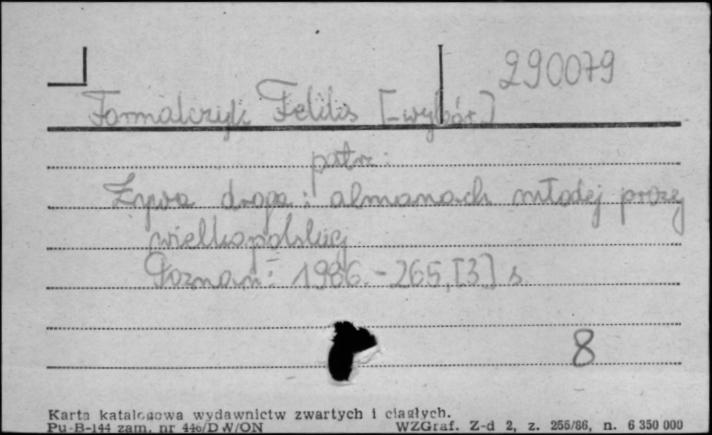 290079
Formalczyk Feliks [-wybór]
patrz:
Żywa droga: almanach młodej prozy
wielkopolskiej
Poznań: 1986. - 265,[3] s
8
Karta katalogowa wydawnictw zwartych i ciągłych.
Pu-B-144 zam. nr 446/DW/ON WZGraf. Z-d 2, z. 255/86, n. 6 350 000